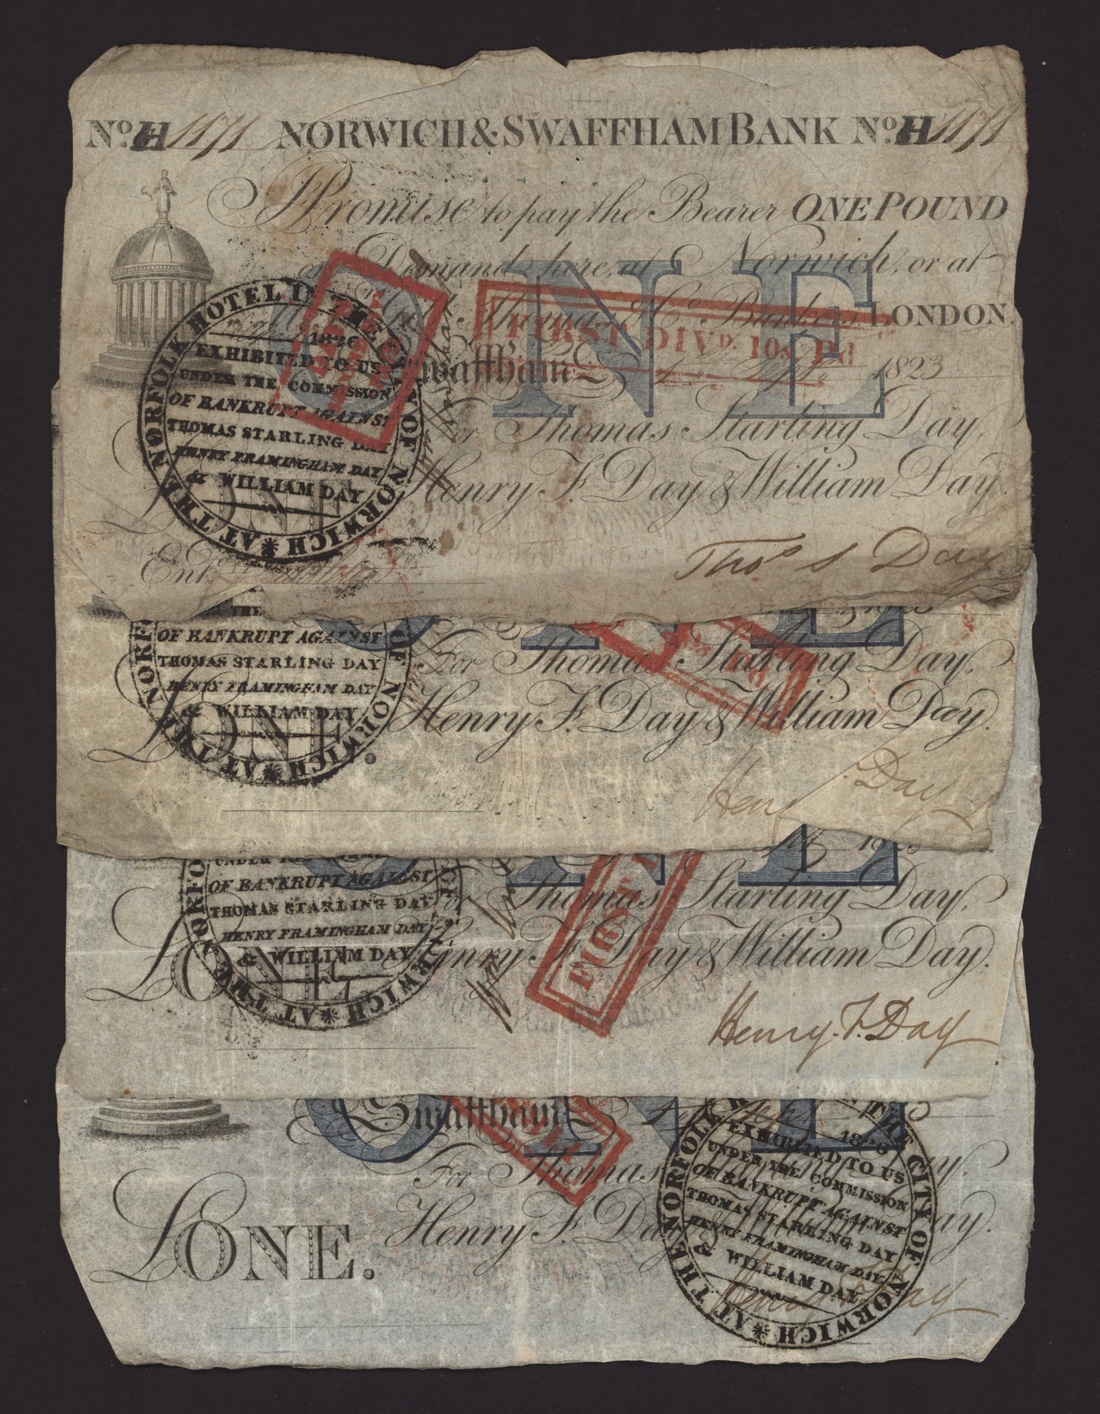 No. H 1171 NORWICH & SWAFFHAM BANK No. H 1171
I Promise to pay the Bearer ONE POUND
on Demand here, at Norwich, or at
Thomas & Co. Bankers, LONDON.
Swaffham 1823
ONE
FIRST DIVD. 10s. Pd
For Thomas Starling Day,
Henry F. Day & William Day.
Thos S Day
Entd.
AT THE NORFOLK HOTEL IN THE CITY OF NORWICH
1826
EXHIBITED TO US
UNDER THE COMMISSION
OF BANKRUPT AGAINST
THOMAS STARLING DAY
HENRY FRAMINGHAM DAY
& WILLIAM DAY
ONE
For Thomas Starling Day,
Henry F. Day & William Day.
£ONE.
Day
OF BANKRUPT AGAINST
THOMAS STARLING DAY
HENRY FRAMINGHAM DAY
& WILLIAM DAY
AT THE NORFO
OF NORWICH
ONE
Thomas Starling Day,
Henry F. Day & William Day.
£ONE
FIRST
Henry. F. Day
UNDER
OF BANKRUPT AGAINST
THOMAS STARLING DAY
HENRY FRAMINGHAM DAY
& WILLIAM DAY
AT THE NORFO
NORWICH
ONE
Swaffham
For Thomas
Henry F. Day
£ONE.
AT THE NORFOLK
THE CITY OF NORWICH
1826
EXHIBITED TO US
UNDER THE COMMISSION
OF BANKRUPT AGAINST
THOMAS STARLING DAY
HENRY FRAMINGHAM DAY
& WILLIAM DAY